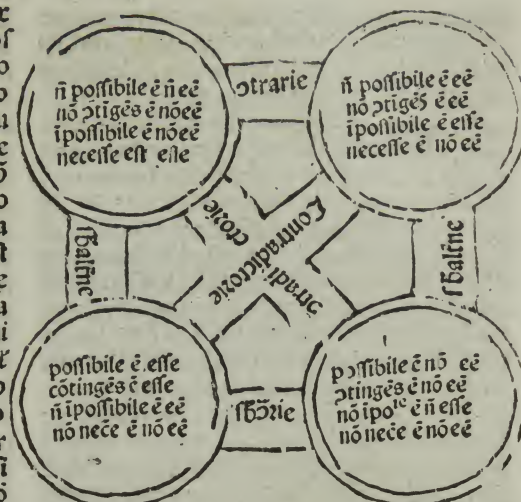 ñ possibile ē ñ eē
nō ↄtigēs ē nōeē
īpossibile ē nōeē
necesse est esse
ↄtrarie
ñ possibile ē eē
nō ↄtigēs ē eē
īpossibile ē esse
necesse ē nō eē
sbalt̄ne
ↄtradictorie
Contradictorie
sbalt̄ne
possibile ē esse
cōtingēs ē esse
ñ īpossibile ē eē
nō necē ē nō eē
sbↄ̄rie
possibile ē nō eē
ↄtingēs ē nō eē
nō īpoˡᵉ ē ñ esse
nō necē ē nō eē